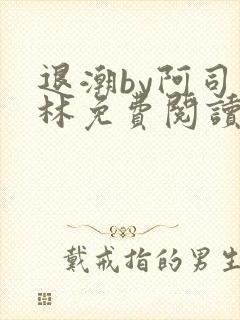 退潮by阿司
林免費閱讀
戴戒指的男生